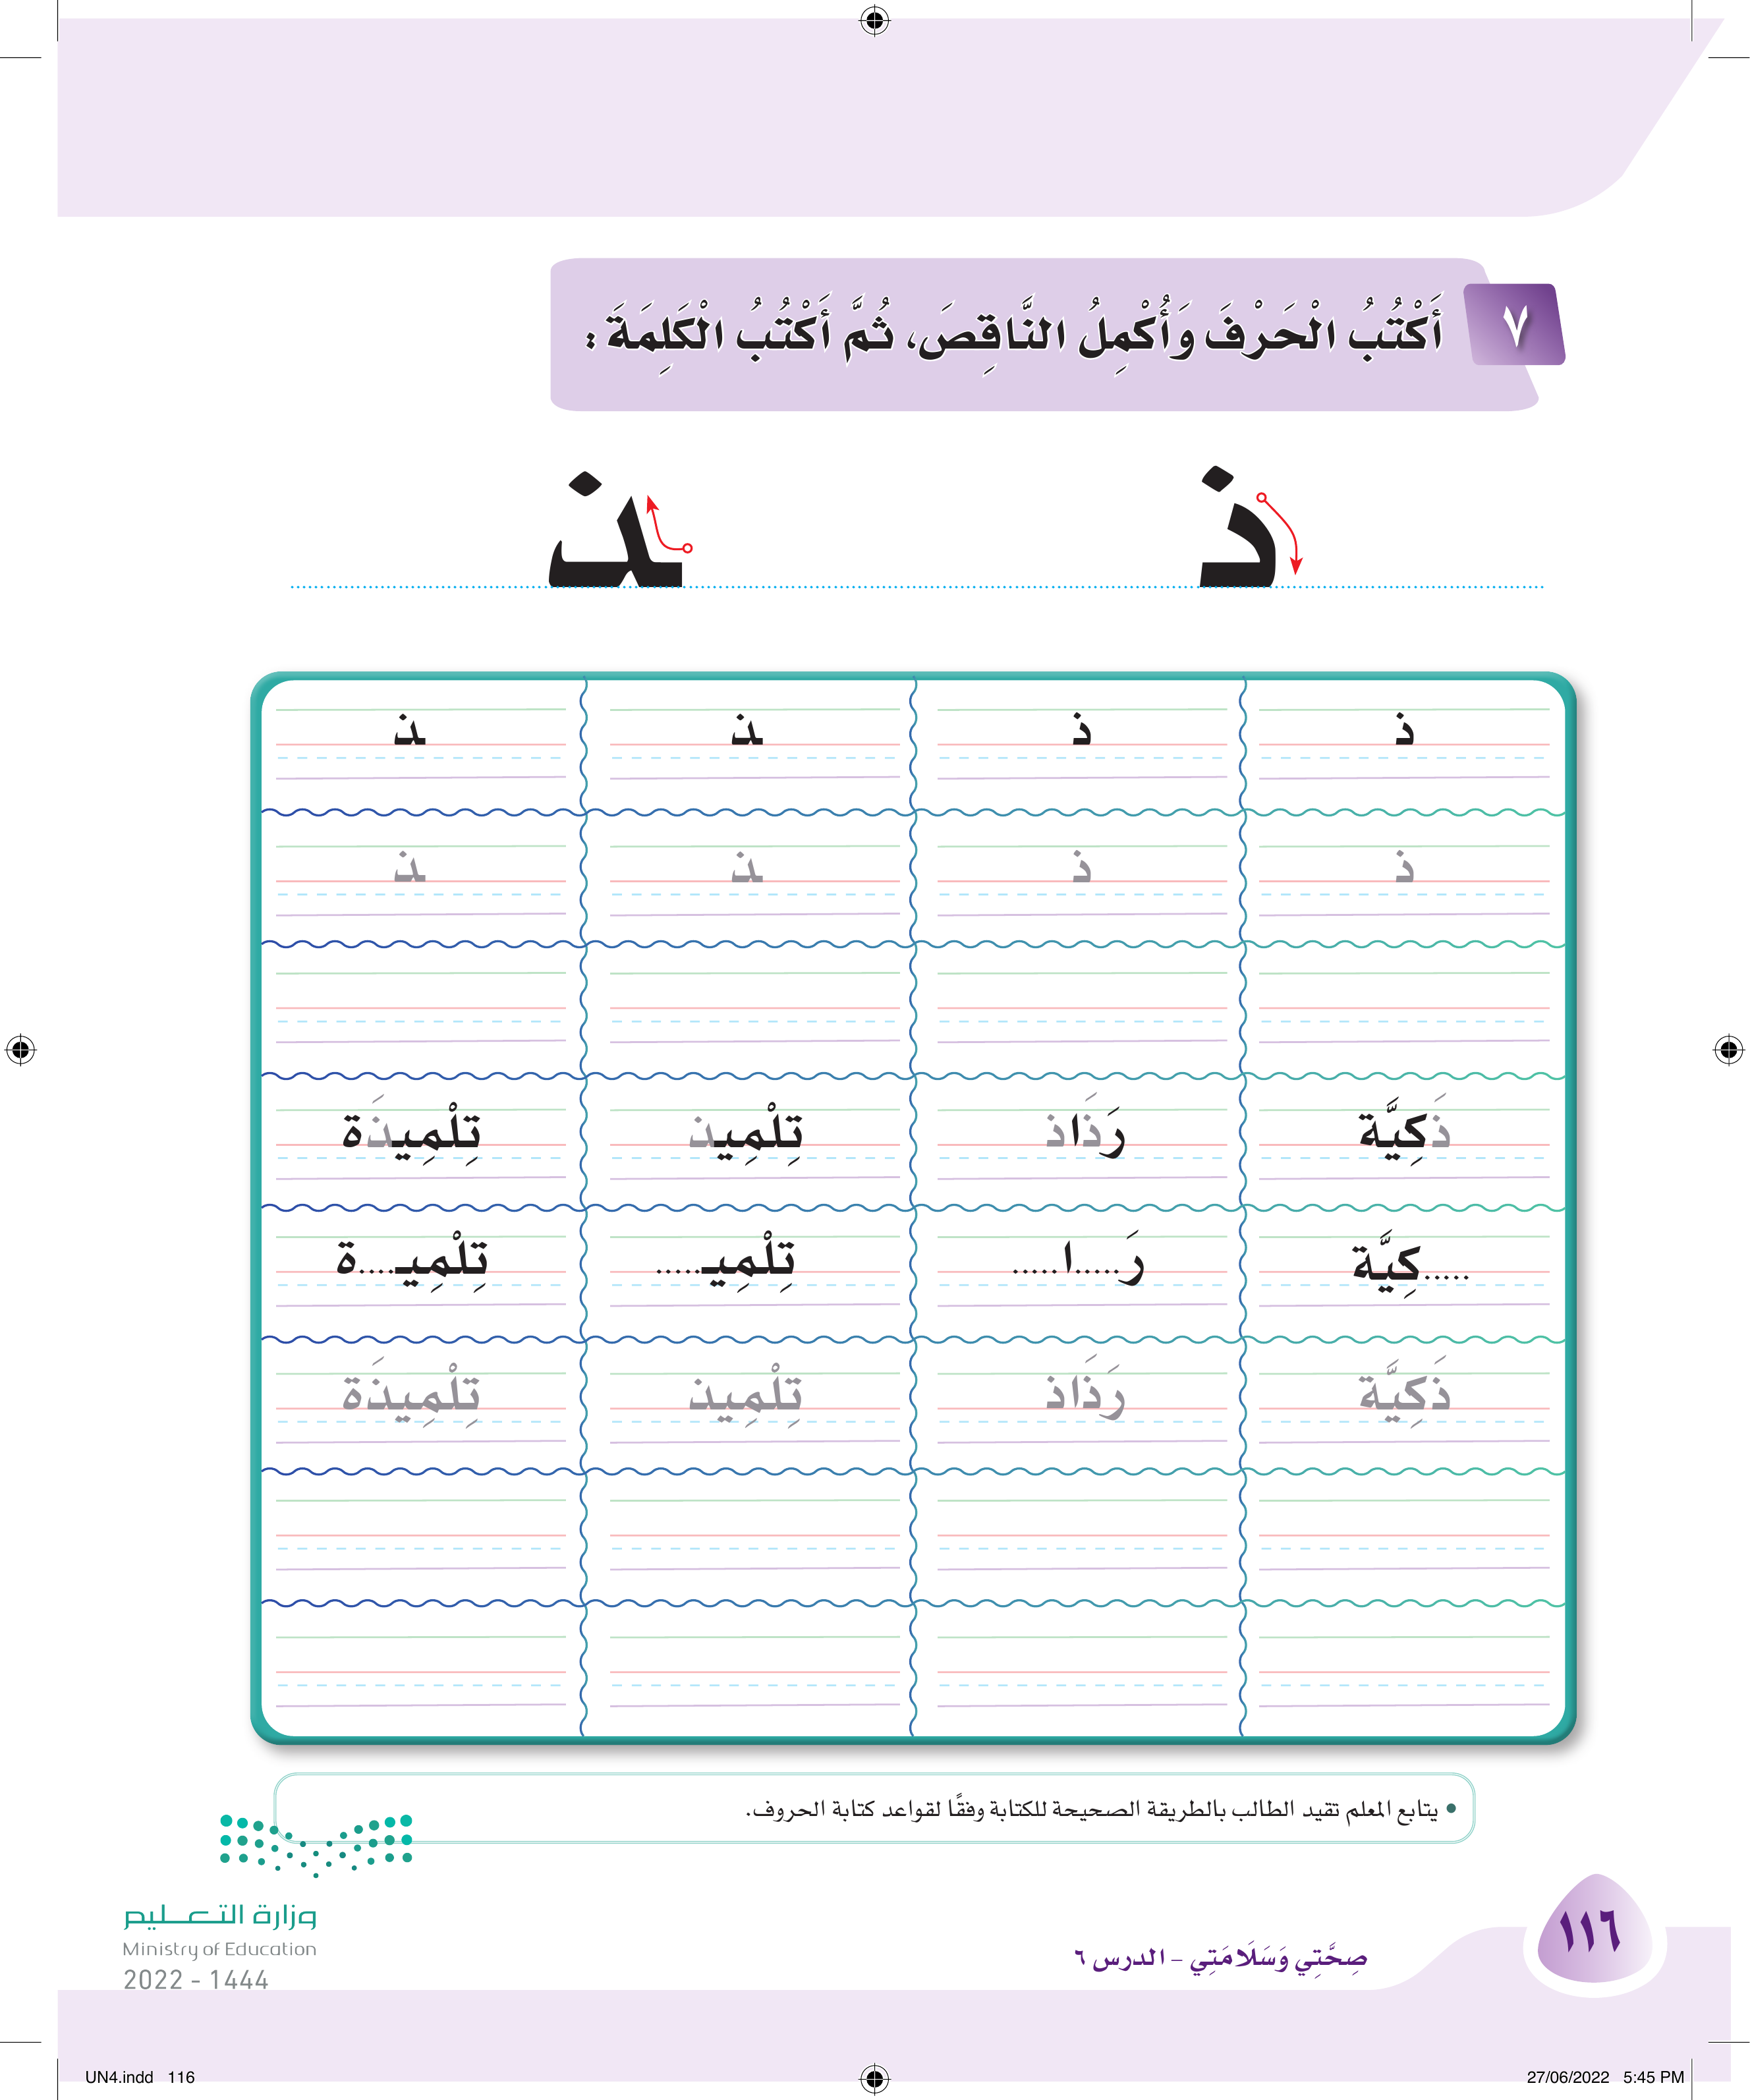 ٧ أَكْتُبُ الْحَرْفَ وَأُكْمِلُ النَّاقِصَ، ثُمَّ أَكْتُبُ الْكَلِمَةَ :
ذ ـذ
ذ ذ ـذ ـذ
ذ ذ ـذ ـذ
ذَكِيَّة رَذَاذ تِلْمِيذ تِلْمِيذَة
.....كِيَّة رَ.....ا..... تِلْمِيـ..... تِلْمِيـ....ة
ذَكِيَّة رَذَاذ تِلْمِيذ تِلْمِيذَة
• يتابع المعلم تقيد الطالب بالطريقة الصحيحة للكتابة وفقًا لقواعد كتابة الحروف.
وزارة التعـــليم
Ministry of Education
2022 - 1444
صِحَّتِي وَسَلَامَتِي - الدرس ٦
١١٦
UN4.indd 116
27/06/2022 5:45 PM